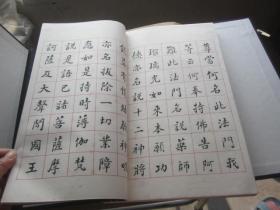 尊當何名此法門我
等云何奉持佛告阿
難此法門名說藥師
瑠璃光如來本願功
德亦名說十二神將
饒益有情結願神
亦名拔除一切業障
應如是持時薄伽梵
說是語已諸菩薩摩
訶薩及大聲聞國王